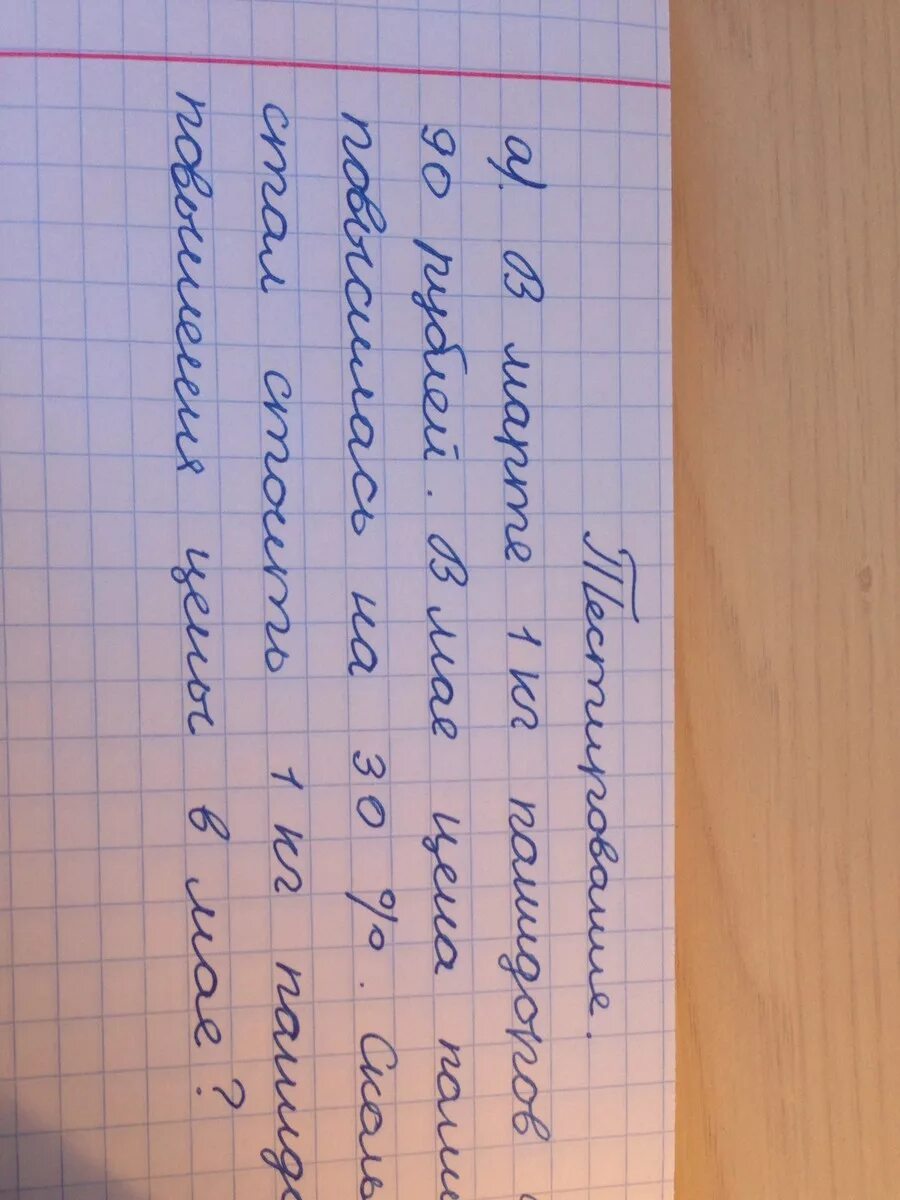 Тестирование.
а). В марте 1 кг памидоров
90 рублей. В мае цена
повысилась на 30 %.
стал стоить 1 кг
повышения цены в мае?